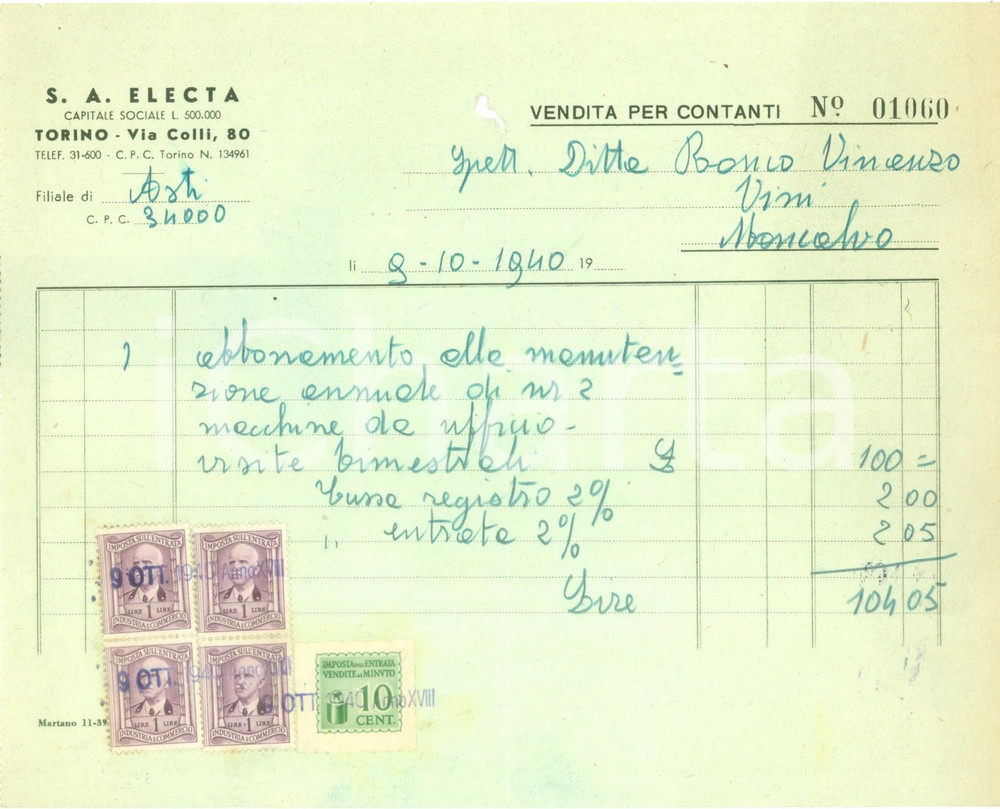 S. A. ELECTA
CAPITALE SOCIALE L. 500.000
TORINO - Via Colli, 80
TELEF. 31-600 - C. P. C. Torino N. 134961
Filiale di Asti
C. P. C. 34000
VENDITA PER CONTANTI Nº 01060
Spett. Ditta Ronco Vincenzo
Vini
Moncalvo
li 9-10-1940 19
1 abbonamento alla manuten=
zione annuale di nr 2
macchine da ufficio -
visite bimestrali £ 100 =
tassa registro 2% 2 00
" entrata 2% 2 05
Lire 104 05
iCharta
IMPOSTA SULL'ENTRATA
LIRE 1 LIRE
INDUSTRIA E COMMERCIO
IMPOSTA SULL'ENTRATA
LIRE 1 LIRE
INDUSTRIA E COMMERCIO
9 OTT. 1940 Anno XVIII
IMPOSTA SULL'ENTRATA
LIRE 1 LIRE
INDUSTRIA E COMMERCIO
IMPOSTA SULL'ENTRATA
LIRE 1 LIRE
INDUSTRIA E COMMERCIO
9 OTT. 1940 Anno XVIII
IMPOSTA SULL'ENTRATA
VENDITE AL MINUTO
10
CENT.
9 OTT. 1940 Anno XVIII
Martano 11-39